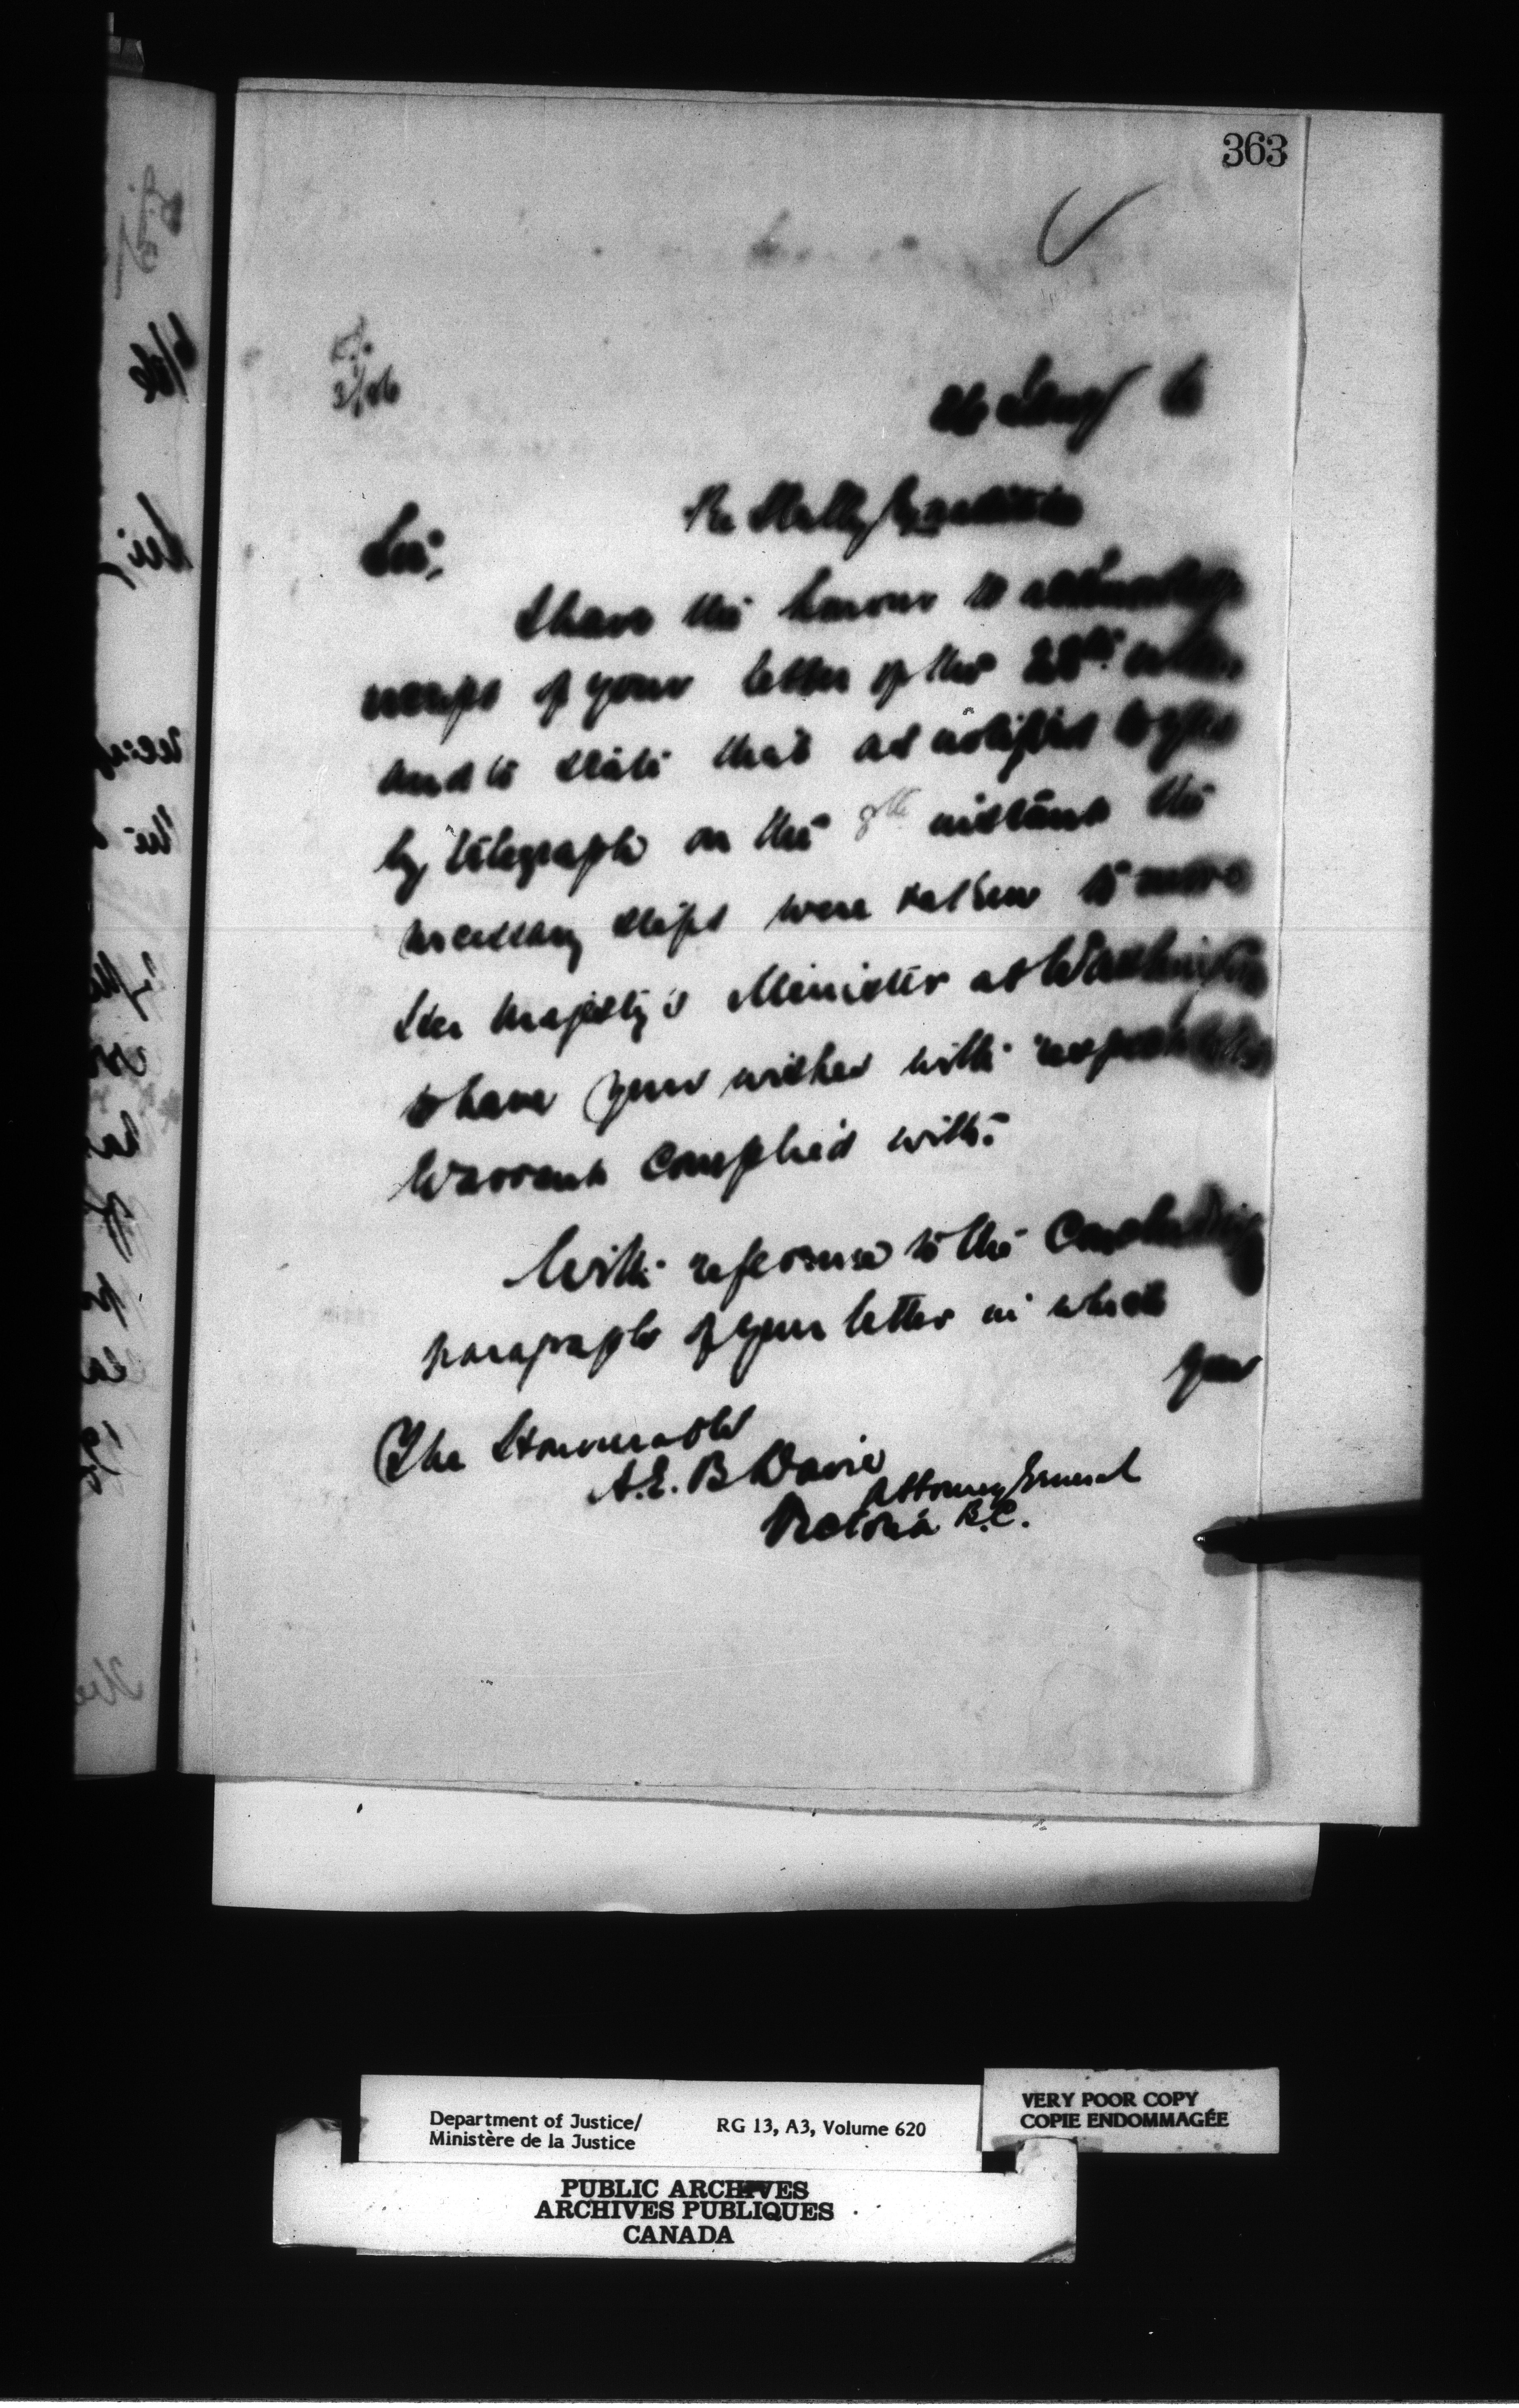 363
26 Jany 6
Re
Sir,
I have the honour to acknowledge
receipt of your letter of the 28th ultimo
and to state that as notified to you
by telegraph on the 8th instant the
necessary steps were taken to move
Her Majesty's Minister at Washington
to have your wishes with respect to the
Warrant complied with.
With reference to the Concluding
paragraph of your letter in which
you
The Honourable
A.E.B Davie
Attorney General
Victoria B.C.
Department of Justice/
Ministère de la Justice
RG 13, A3, Volume 620
VERY POOR COPY
COPIE ENDOMMAGÉE
PUBLIC ARCHIVES
ARCHIVES PUBLIQUES
CANADA